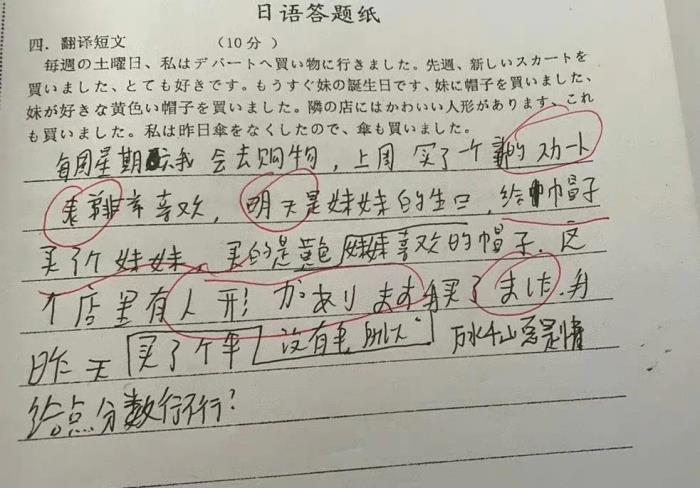 日语答题纸
四．翻译短文 （10分）
毎週の土曜日、私はデパートへ買い物に行きました。先週、新しいスカートを
買いました、とても好きです。もうすぐ妹の誕生日です、妹に帽子を買いました、
妹が好きな黄色い帽子を買いました。隣の店にはかわいい人形があります、これ
も買いました。私は昨日傘をなくしたので、傘も買いました。
每周星期六我 会去购物，上周 买了一个 的 スカート
非常喜欢，明天是妹妹的生日，给 帽子
买了个妹妹，买的是黄色妹妹喜欢的帽子．这
个店里有人形 があります 买了ました．
昨天 买了个伞 没有伞， 万水千山总是情
给点分数行不行？